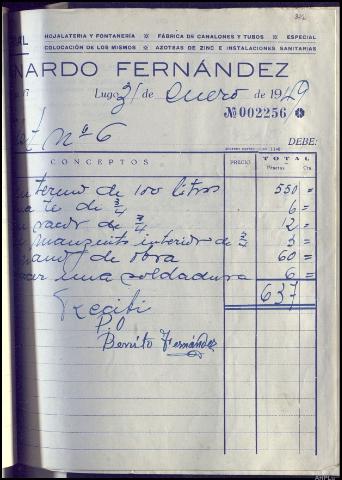 HOJALATERIA Y FONTANERÍA ※ FÁBRICA DE CANALONES Y TUBOS ※ ESPECIAL
COLOCACIÓN DE LOS MISMOS ※ AZOTEAS DE ZINC E INSTALACIONES SANITARIAS
NARDO FERNÁNDEZ
Lugo 31 de enero de 1949
Nº 002256
nº 6
DEBE:
CONCEPTOS PRECIO TOTAL
Pesetas Cts.
termo de 100 litros 550 =
te de 3/4 6 =
de 3/4 12 =
manguito interior de 3/4 3 =
mano de obra 60 =
una soldadura 6 =
637
Recibi
P.O
Benito Fernández